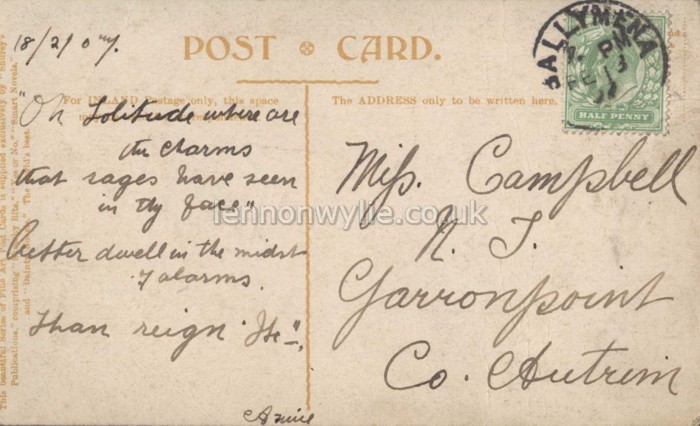 18/2/07.
POST CARD.
For INLAND Postage only, this space
The ADDRESS only to be written here.
"Oh Solitude where are
the charms
that sages have seen
in thy face"
better dwell in the midst
of alarms.
Than reign
Annie
Miss. Campbell
N. S.
Garronpoint
Co. Antrim
BALLYMENA
PM
FE 13
HALF PENNY
This beautiful Series of Fine Art Post Cards is supplied exclusively by "Shurey's
Publications," comprising "Smart Novels,"
lennonwylie.co.uk